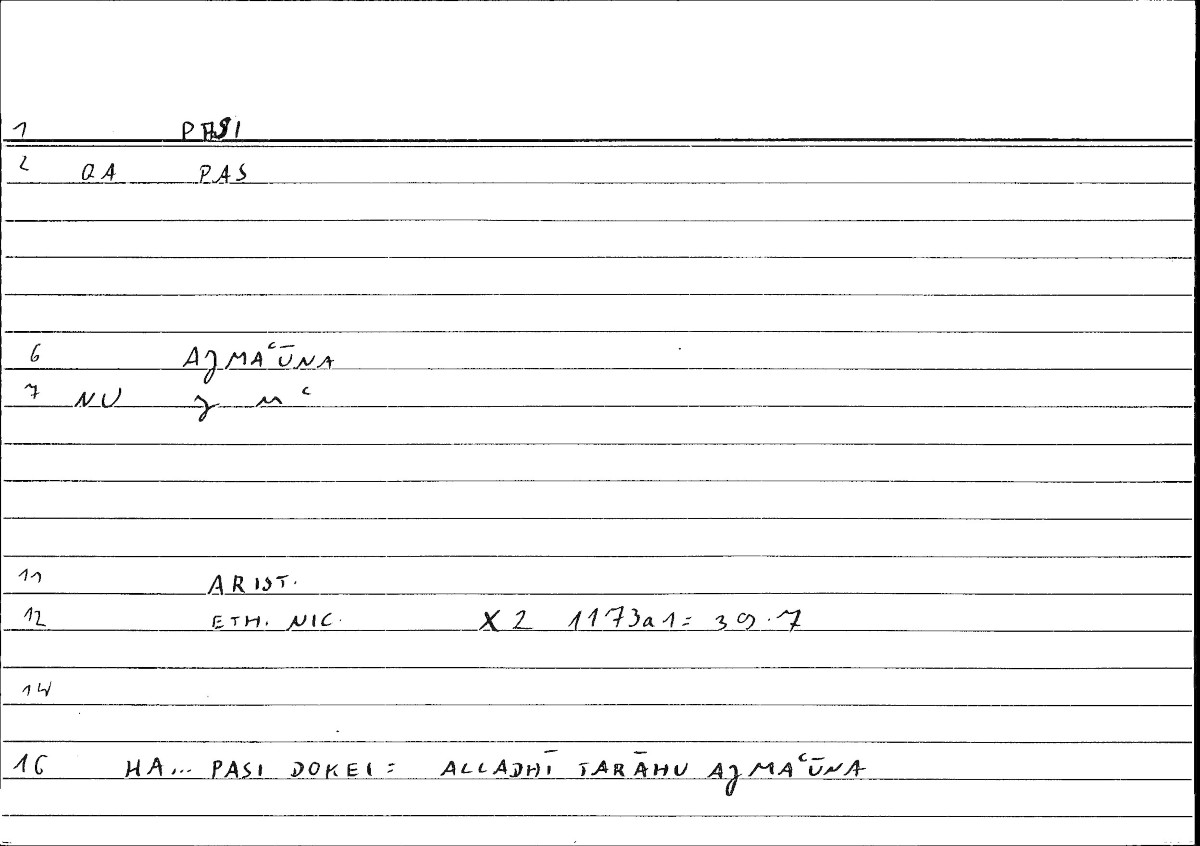 1 PASI
2 QA PAS
6 AJMAʿŪNA
7 NU J M ʿ
11 ARIST.
12 ETH. NIC. X 2 1173a1= 39.7
14
16 HA... PASI DOKEI = ALLADHĪ TARĀHU AJMAʿŪNA